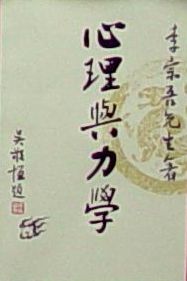 李宗吾先生著
心理與力學
吳敬恆題